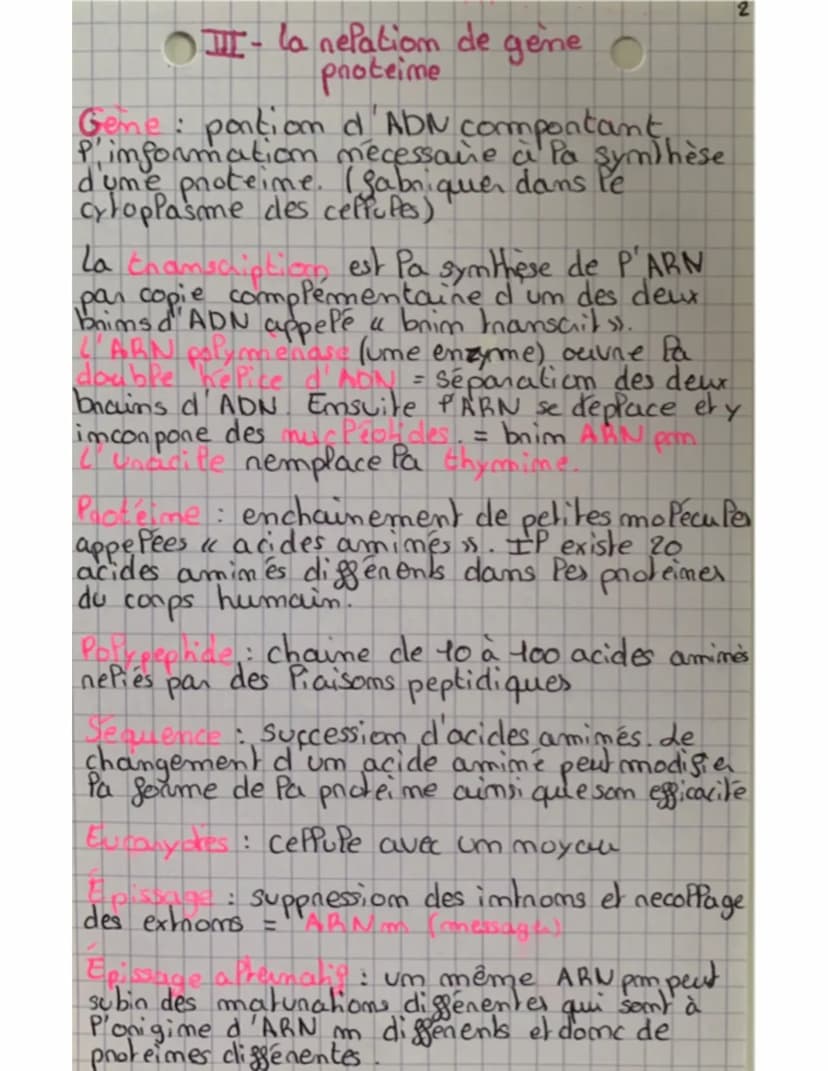 2
III - la relation de gène
proteine
Gène : portion d'ADN comportant
l'information nécessaire à la synthèse
d'une proteine. (fabriquer dans le
cytoplasme des cellules)
La transcription est la synthèse de l'ARN
par copie complémentaire d'un des deux
brins d'ADN appelé « brin transcrit ».
L'ARN polymérase (une enzyme) ouvre la
double hélice d'ADN = séparation des deux
brains d'ADN. Ensuite l'ARN se deplace et y
incorpore des nucléotides. = brin ARN pm
L'uracile remplace la thymine.
Protéine : enchainement de petites molécules
appelées « acides aminés ». Il existe 20
acides aminés différents dans les proteines
du corps humain.
Polypeptide : chaine de 10 à 100 acides aminés
reliés par des liaisons peptidiques
Séquence : succession d'acides aminés. Le
changement d'un acide aminé peut modifier
la forme de la protéine ainsi que son efficacité
Eucarydtes : cellule avec un noyau
Épissage : suppression des introns et recollage
des extrons = ARN m (messager)
Épissage alternatif : un même ARN pm peut
subir des maturations différentes qui sont à
l'origine d'ARN m différents et donc de
proteines différentes.